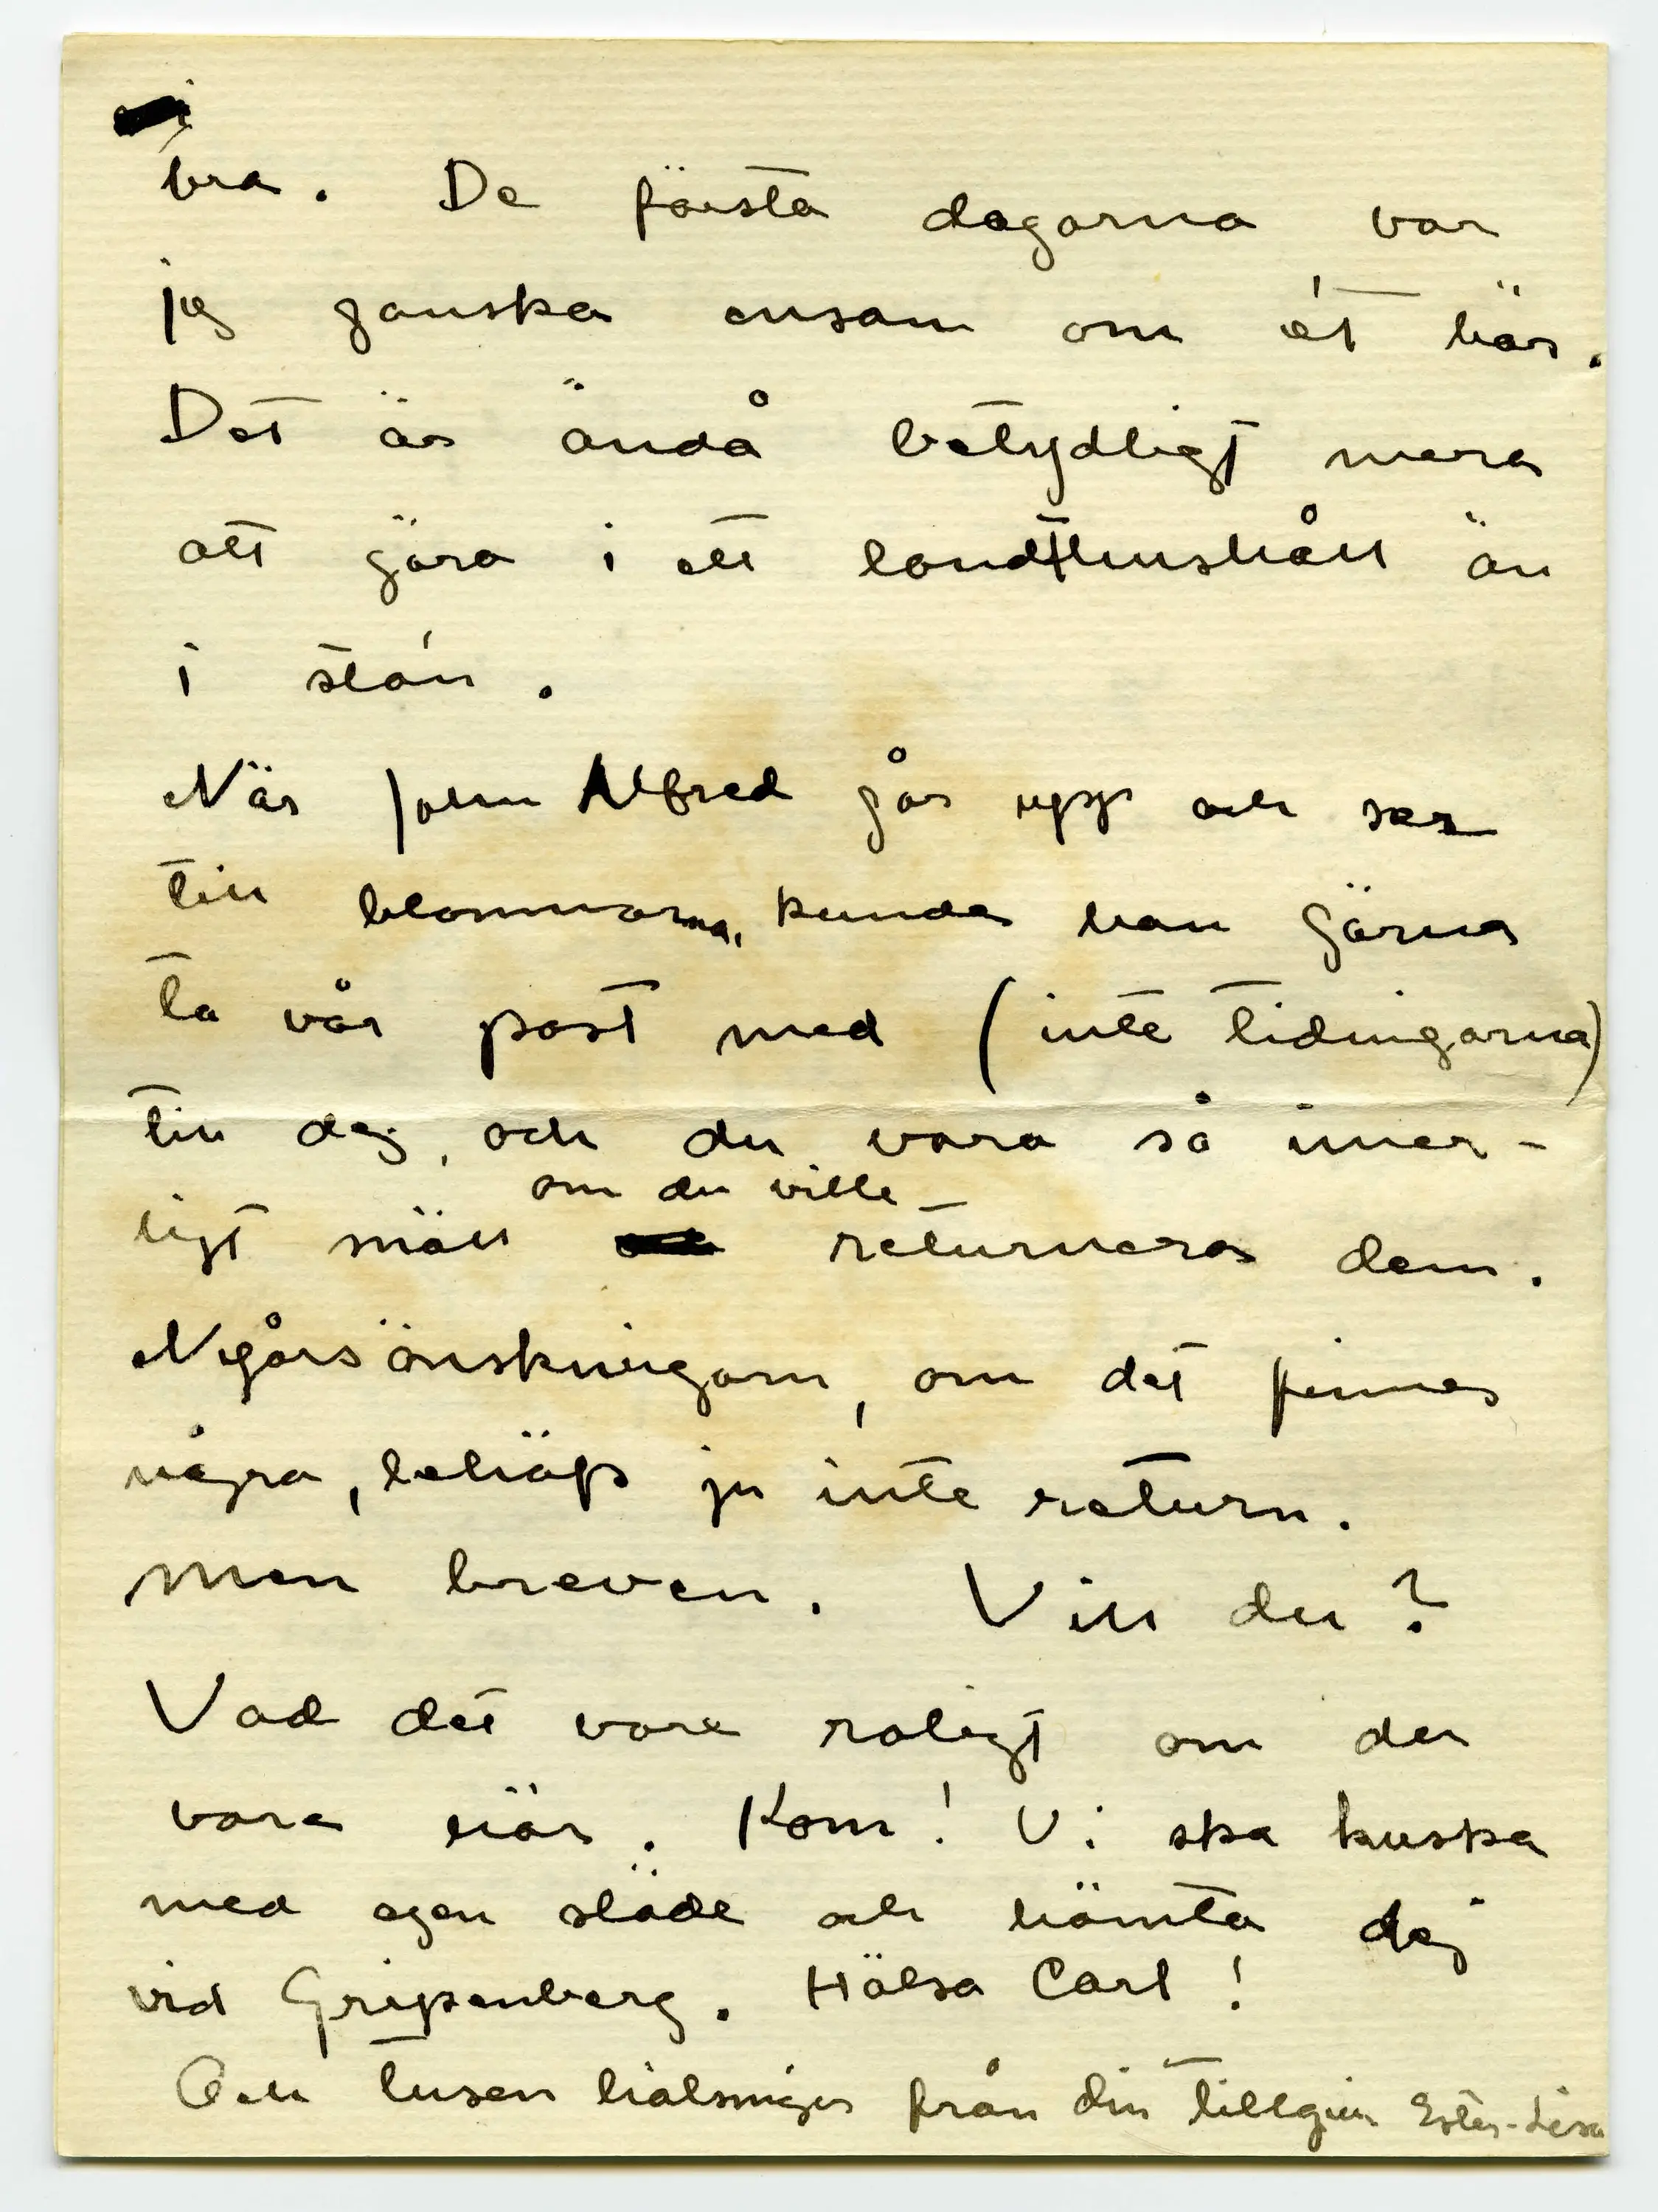 bra. De första dagarna var
jag ganska ensam om ét här.
Det är ändå betydligt mera
att göra i ett landthushåll än
i stán.
När John Alfred går upp och ser
till blommorna, kunde han gärna
ta vår post med (inte tidningarna)
till dej, och du vara så inner-
ligt snäll om du ville returnera dem.
Nygårsönskningarn, om det finnes
några, behöfs ju inte return.
Men breven. Vill du?
Vad det vore roligt om du
vore här. Kom! Vi ska kuska
med egen släde och hämta dej
vid Gripenberg. Hälsa Carl!
Och tusen hälsningar från din tillgivn Ester-Lisa